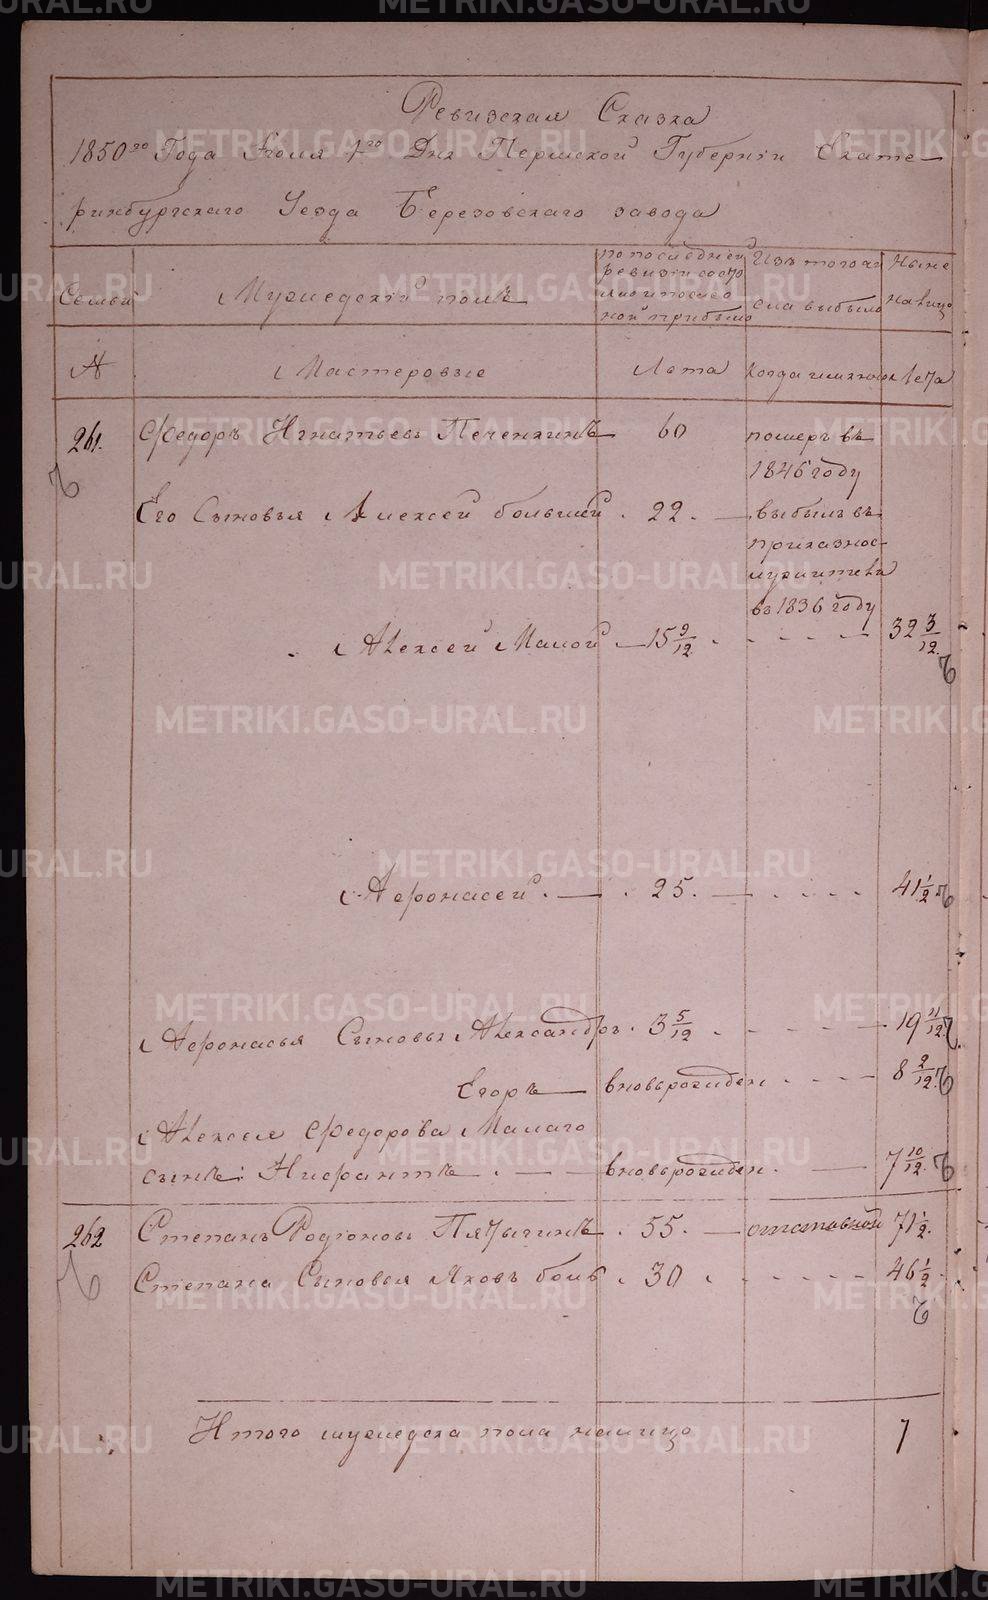 Ревизская Сказка
1850го Года Июля 1го Дня Пермской Губернiи Екате-
ринбургскаго Уезда Березовскаго завода
Семьи
Мужнескiй полъ
по последней
ревизiи состо
яло и после
ной прибыло
Изъ того чи
сла выбыло
Ныне
на лицо
№
Мастеровые
Лѣта
когда именно
лета
261.
Федоръ Игнатьевъ Печенкинъ 60 померъ въ
1846 году
Его Сыновья Алексей большей . 22. — выбылъ въ
приказнос-
лужители
въ 1836 году
Алексей Малой — 15 9/12 32 3/12.
Афонасей . — . 25. — 41 1/2
Афонасья Сыновья Александръ . 3 5/12 . 19 11/12.
Егоръ — вновьрожден 8 2/12.
Алексея Федорова Малаго
сынъ: Нифантъ — вновьрожден. — 7 10/12.
262
Степанъ Родiоновъ Пятычинъ . 55. — отставной 71 1/2.
Степана Сыновья Яковъ боль . 30 . 46 1/2
Итого мужнеска пола налицо 7
METRIKI.GASO-URAL.RU